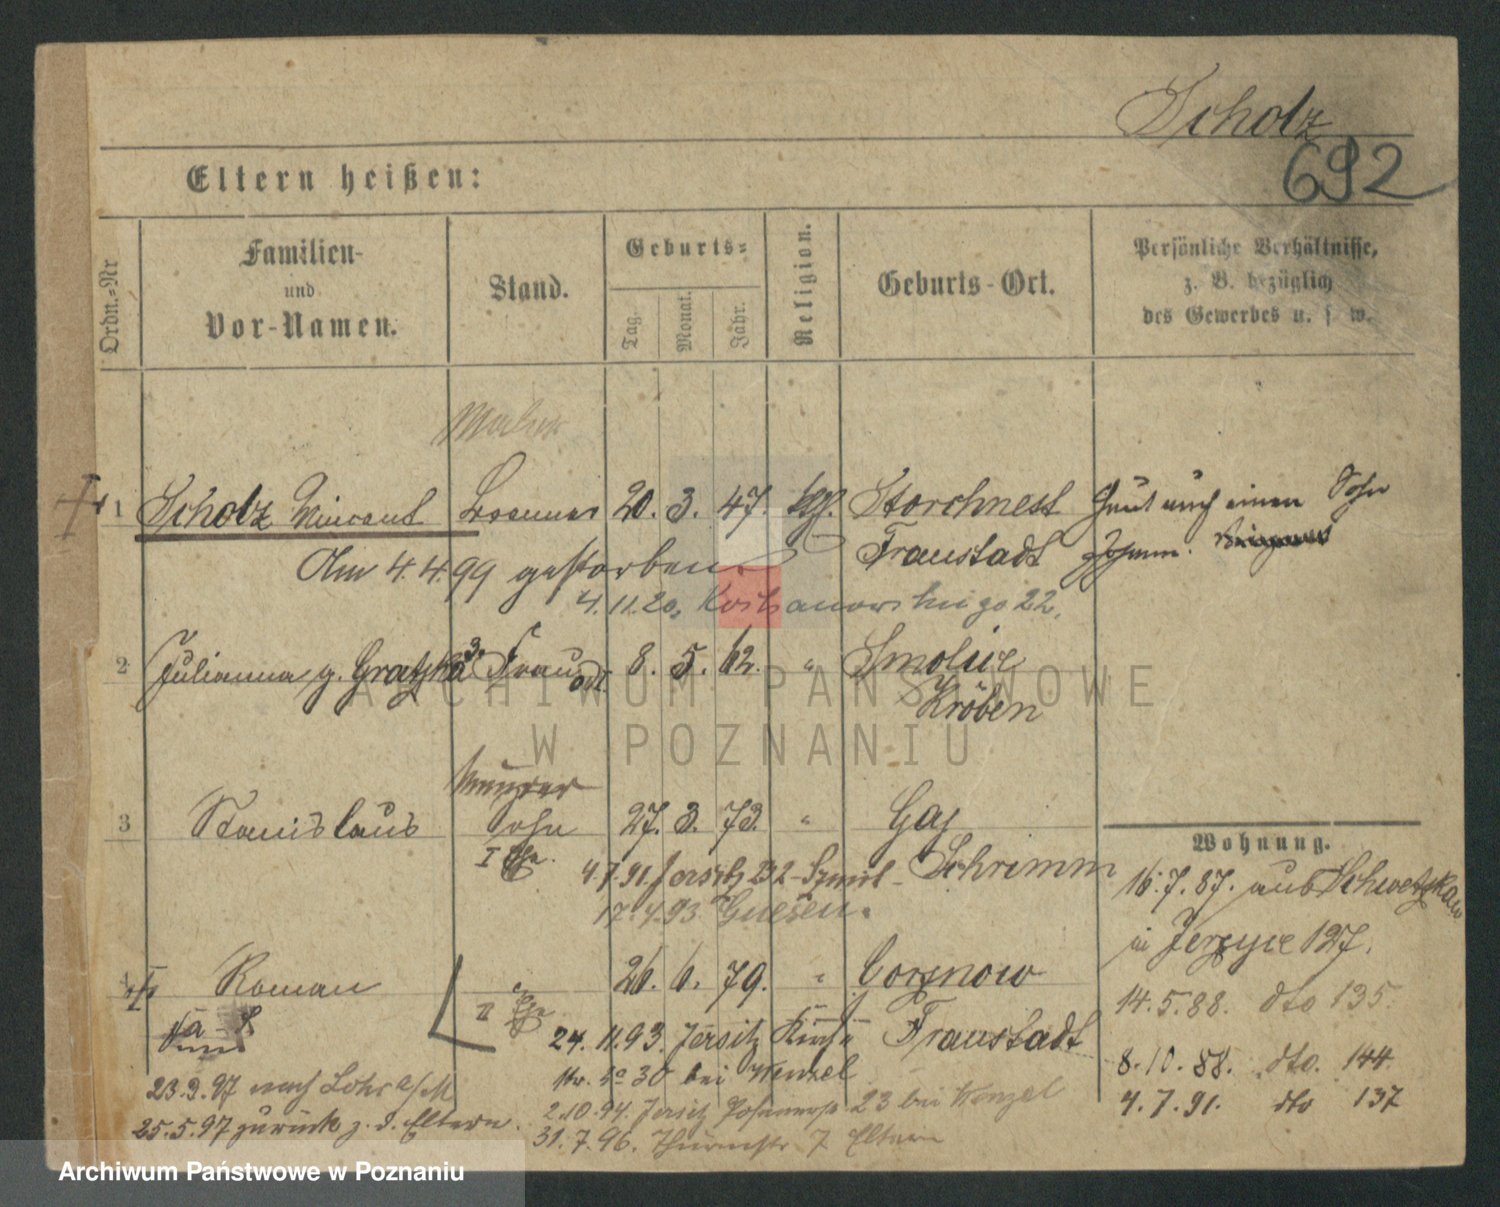 Scholz
692
Eltern heißen:
Ordn.=Nr
Familien-
und
Vor-Namen.
Stand.
Geburts=
Tag.
Monat.
Jahr.
Religion.
Geburts-Ort.
Persönliche Verhältnisse,
z. B. bezüglich
des Gewerbes u. s. w.
1 Scholz Vincent 20. 3. 47. Storchnest
Fraustadt
einen Sohn
Am 4.4.99 gestorben
4.11.20,
2 Julianna g. Gratzka Frau 8. 5. 62. " Smolice
Kröben
3 Stanislaus Sohn 27. 3. 73. " Gaj
Schrimm
I Ehe.
4.7.91. Jersitz 232
17.4.93. Gnesen.
Wohnung.
16.7.87. aus Schwetzkau
in Jerzyce 127.
14.5.88. dto 135.
8.10.88. dto. 144.
4.7.91. dto 137
4 Roman 26. 6. 79. "
Fraustadt
II Ehe
24.11.93. Jersitz Kirch
str. No 30 bei Wenzel
23.3.97 nach
25.5.97 zurück z. d. Eltern
2.10.94. Jersitz 23 bei Wenzel
31.7.96. Thurmstr. 7 Eltern
ARCHIWUM PAŃSTWOWE
W POZNANIU
Archiwum Państwowe w Poznaniu